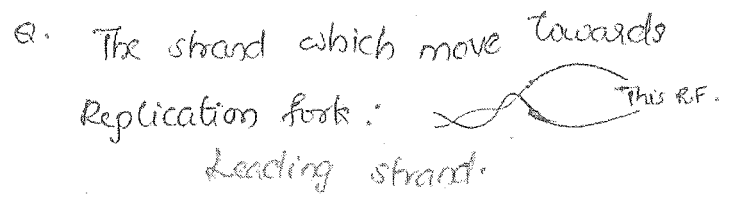 Q. The strand which move towards
Replication fork :
This R.F.
Leading strand.